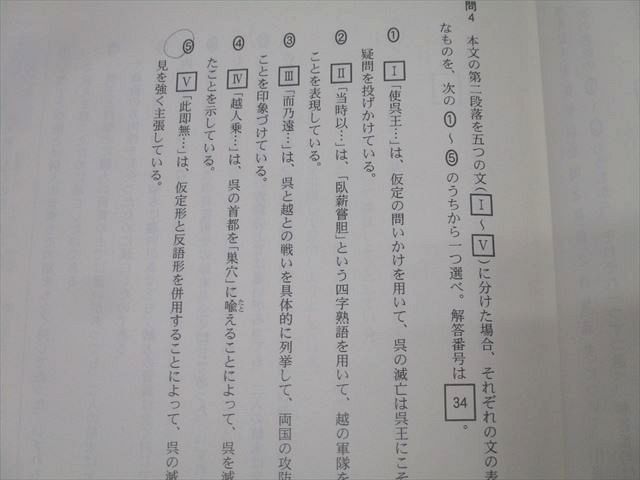 問4 本文の第二段落を五つの文(Ⅰ～Ⅴ)に分けた場合、それぞれの文の表
なものを、次の①～⑤のうちから一つ選べ。解答番号は34。
① Ⅰ「使呉王…」は、仮定の問いかけを用いて、呉の滅亡は呉王にこそ
疑問を投げかけている。
② Ⅱ「当時以…」は、「臥薪嘗胆」という四字熟語を用いて、越の軍隊を
ことを表現している。
③ Ⅲ「而乃遠…」は、呉と越との戦いを具体的に列挙して、両国の攻防
ことを印象づけている。
④ Ⅳ「越人乗…」は、呉の首都を「巣穴」に喩えることによって、呉を滅
たと
たことを示している。
⑤ Ⅴ「此即無…」は、仮定形と反語形を併用することによって、呉の滅
見を強く主張している。